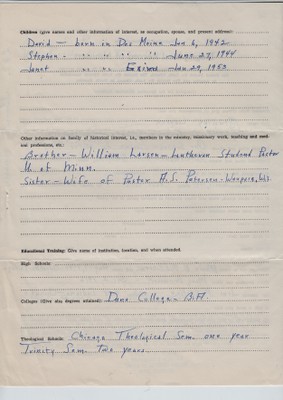 Children (give names and other information of interest, as occupation, spouse, and present address):
David — born in Des Moines Jan 6, 1942
Stephen - " " " " - June 23, 1944
Janet " " Exira - Jan 29, 1953
Other information on family of historical interest, i.e., members in the ministry, missionary work, teaching and medical professions, etc:
Brother - William Larsen - Lutheran Student Pastor
U. of Minn.
Sister - Wife of Pastor A.S. Petersen - Waupaca, Wis.
Educational Training: Give name of institution, location, and when attended.
High School:
Colleges (Give also degrees attained): Dana College - B.A.
Theological Schools: Chicago Theological Sem. one year
Trinity Sem. Two years